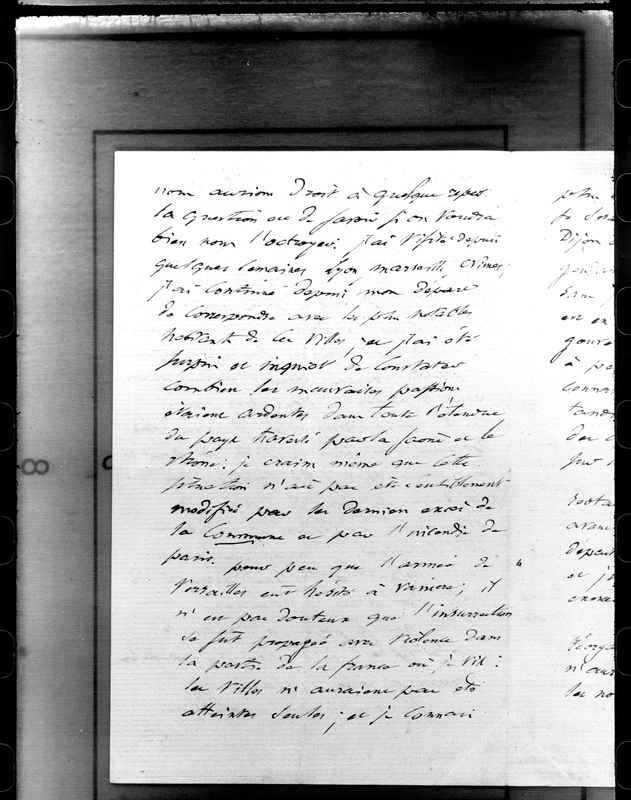 nous aurions droit à quelque repos
la question est de savoir si on voudra
bien nous l'octroyer. j'ai visité depuis
quelques semaines Lyon, marseille, nimes;
j'ai continué depuis mon depart
de correspondre avec les plus notables
habitants de ces villes; et j'ai été
surpris et inquiet de constater
combien les mauvaises passions
étaient ardentes dans toute l'étendue
du pays traversé par la saone et le
rhône: je crains même que cette
situation n'ait pas été sensiblement
modifiée par les derniers excès de
la Commune et par l'incendie de
paris. pour peu que l'armée de
Versailles eut hésité à vaincre; il
n'est pas douteux que l'insurrection
se fut propagée avec violence dans
la partie de la france où je vis:
les villes n'auraient pas été
atteintes seules; et je connais
plus
Dijon
dans
et en
à
des
sur
depuis
et j'
n'aur
les no